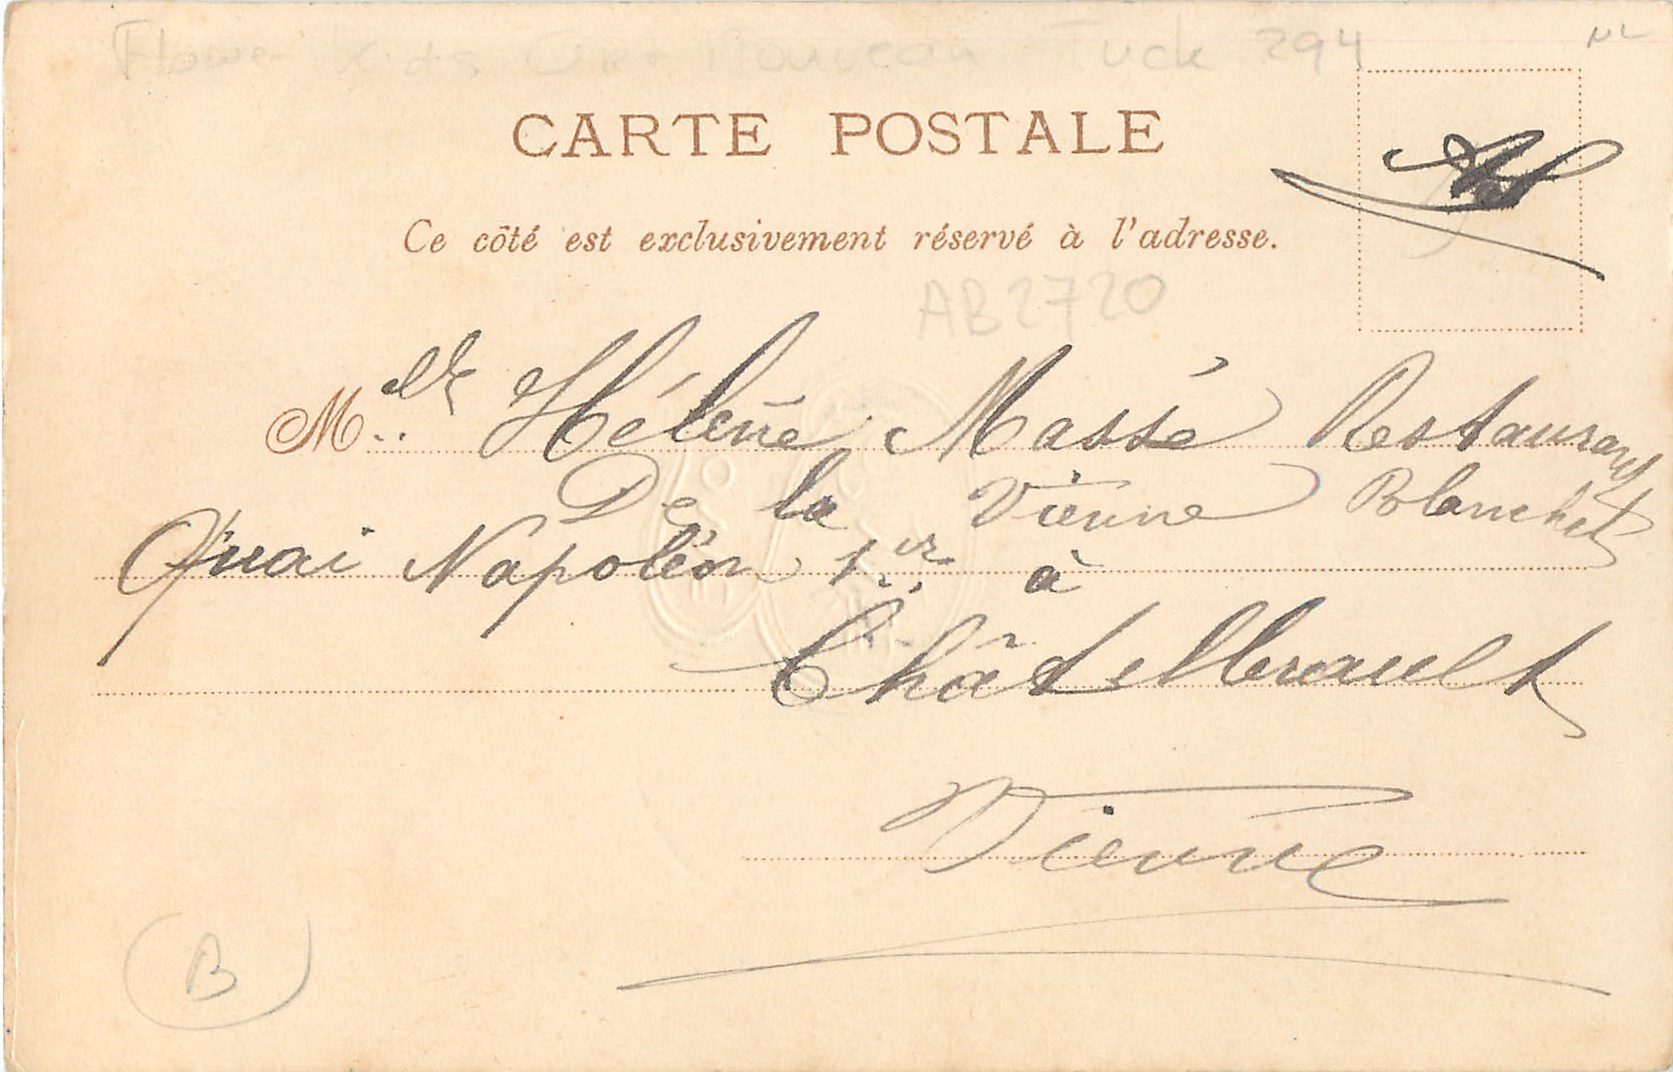 Flower Kids Art Nouveau Tuck 294
NL
CARTE POSTALE
Ce côté est exclusivement réservé à l'adresse.
AB2720
Melle Hélène Massé Restaurant
De la Vienne Blanchet
Quai Napoléon 1er à
Châtellerault
Vienne
B